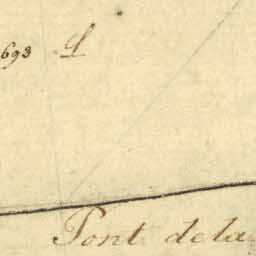 693 L
Pont de la